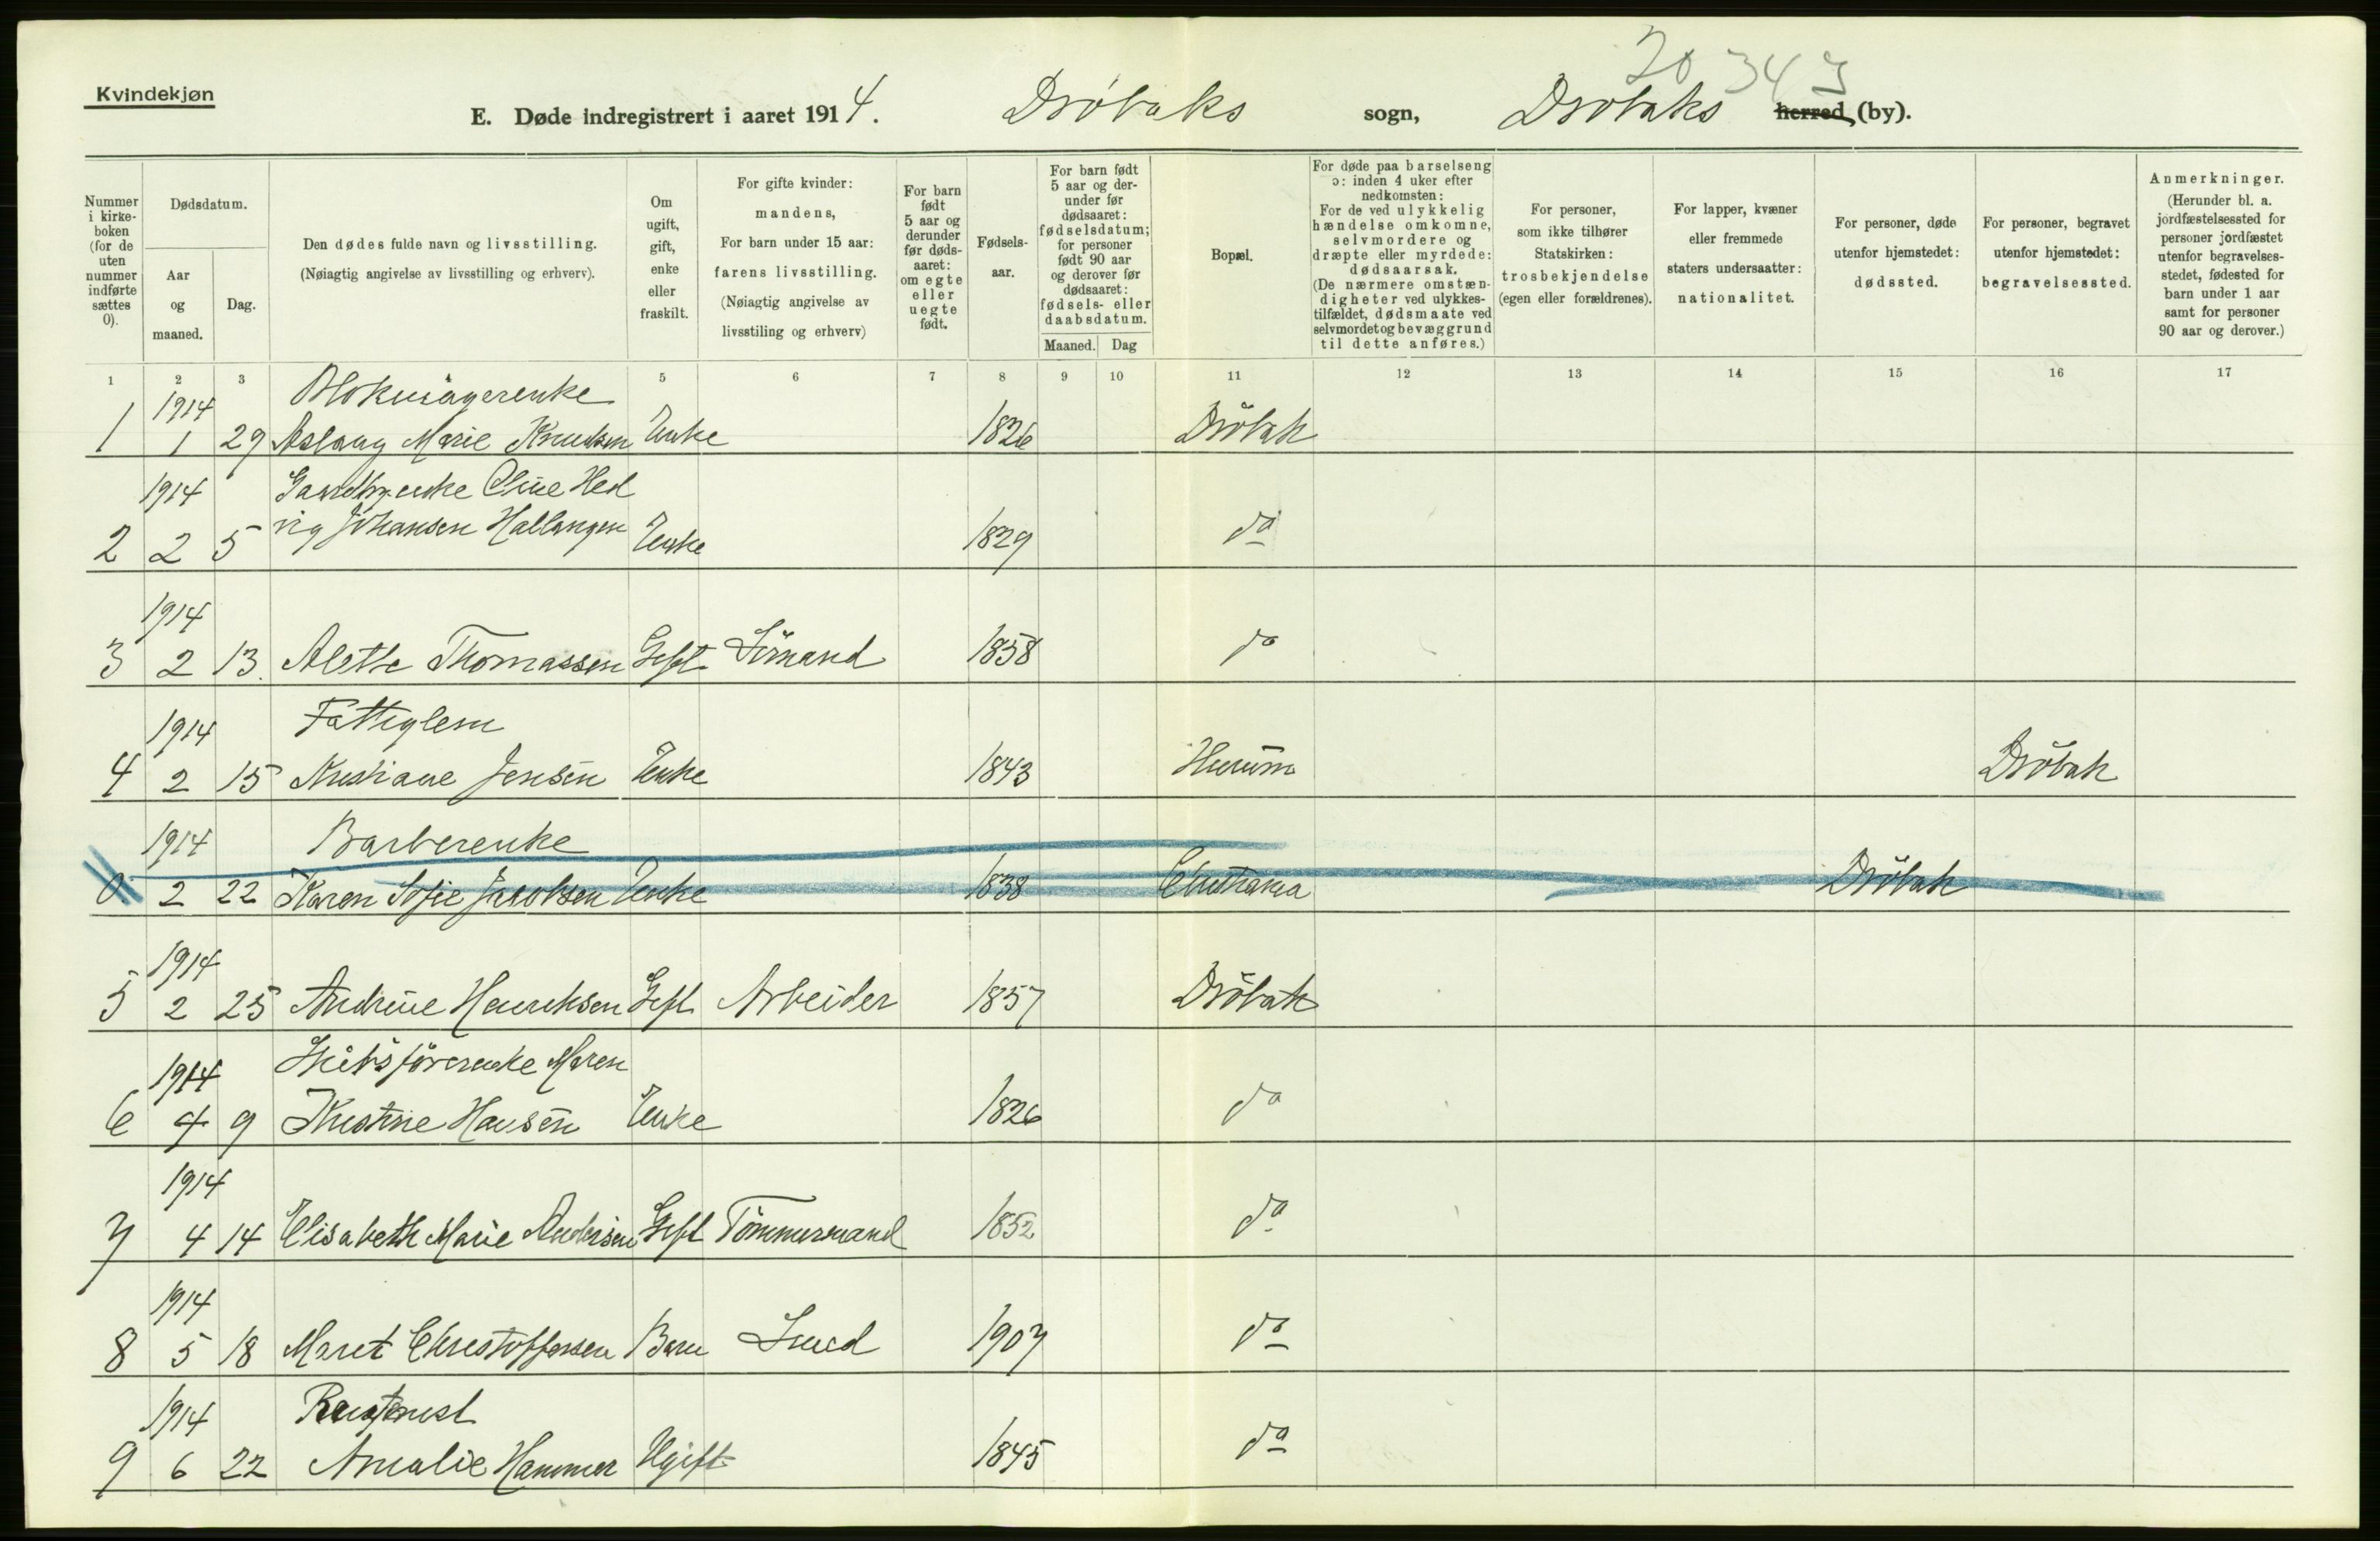 20 343
Kvindekjøn
E. Døde indregistrert i aaret 1914. Drøbaks sogn, Drøbaks herred (by).
Nummer i kirke-boken (for de uten nummer indførte sættes 0).
Dødsdatum.
Aar og maaned.
Dag.
Den dødes fulde navn og livsstilling.
(Nøiagtig angivelse av livsstilling og erhverv).
Om ugift, gift, enke eller fraskilt.
For gifte kvinder: mandens,
For barn under 15 aar: farens livsstilling.
(Nøiagtig angivelse av livsstiling og erhverv)
For barn født 5 aar og derunder før døds-aaret: om egte eller uegte født.
Fødsels-aar.
For barn født 5 aar og der-under før dødsaaret: fødselsdatum; for personer født 90 aar og derover før dødsaaret: fødsels- eller daabsdatum.
Maaned. Dag
Bopæl.
For døde paa barselseng ɔ: inden 4 uker efter nedkomsten:
For de ved ulykkelig hændelse omkomne, selvmordere og dræpte eller myrdede: dødsaarsak.
(De nærmere omstæn-digheter ved ulykkes-tilfældet, dødsmaate ved selvmordet og bevæggrund til dette anføres.)
For personer, som ikke tilhører Statskirken: trosbekjendelse (egen eller forældrenes).
For lapper, kvæner eller fremmede staters undersaatter: nationalitet.
For personer, døde utenfor hjemstedet: dødssted.
For personer, begravet utenfor hjemstedet: begravelsessted.
Anmerkninger.
(Herunder bl. a. jordfæstelsessted for personer jordfæstet utenfor begravelses-stedet, fødested for barn under 1 aar samt for personer 90 aar og derover.)
1 2 3 5 6 7 8 9 10 11 12 13 14 15 16 17
1914
1 1 29 Aslaug Marie Knudsen Enke 1826 Drøbak
1914 Oline Hed
2 2 5 vig Johansen Hallangen Enke 1829 do
1914
3 2 13. Alette Thomassen Gift Sömand 1858 do
1914 Fattiglem
4 2 15 Kristiane Jensen Enke 1843 Hurum Drøbak
1914 Barberenke
0 2 22 Karen Sofie Jacobsen Enke 1838 Christiania Drøbak
1914
5 2 25 Andrine Henriksen Gift Arbeider 1857 Drøbak
1914 Skibsförerenke Maren
6 4 9 Kristine Hansen Enke 1826 do
1914
7 4 14 Elisabeth Marie Andersen Gift Tömmermand 1852 do
1914
8 5 18 Marit Christoffersen Barn Smed 1907 do
1914
9 6 22 Amalie Hammer Ugift 1845 do